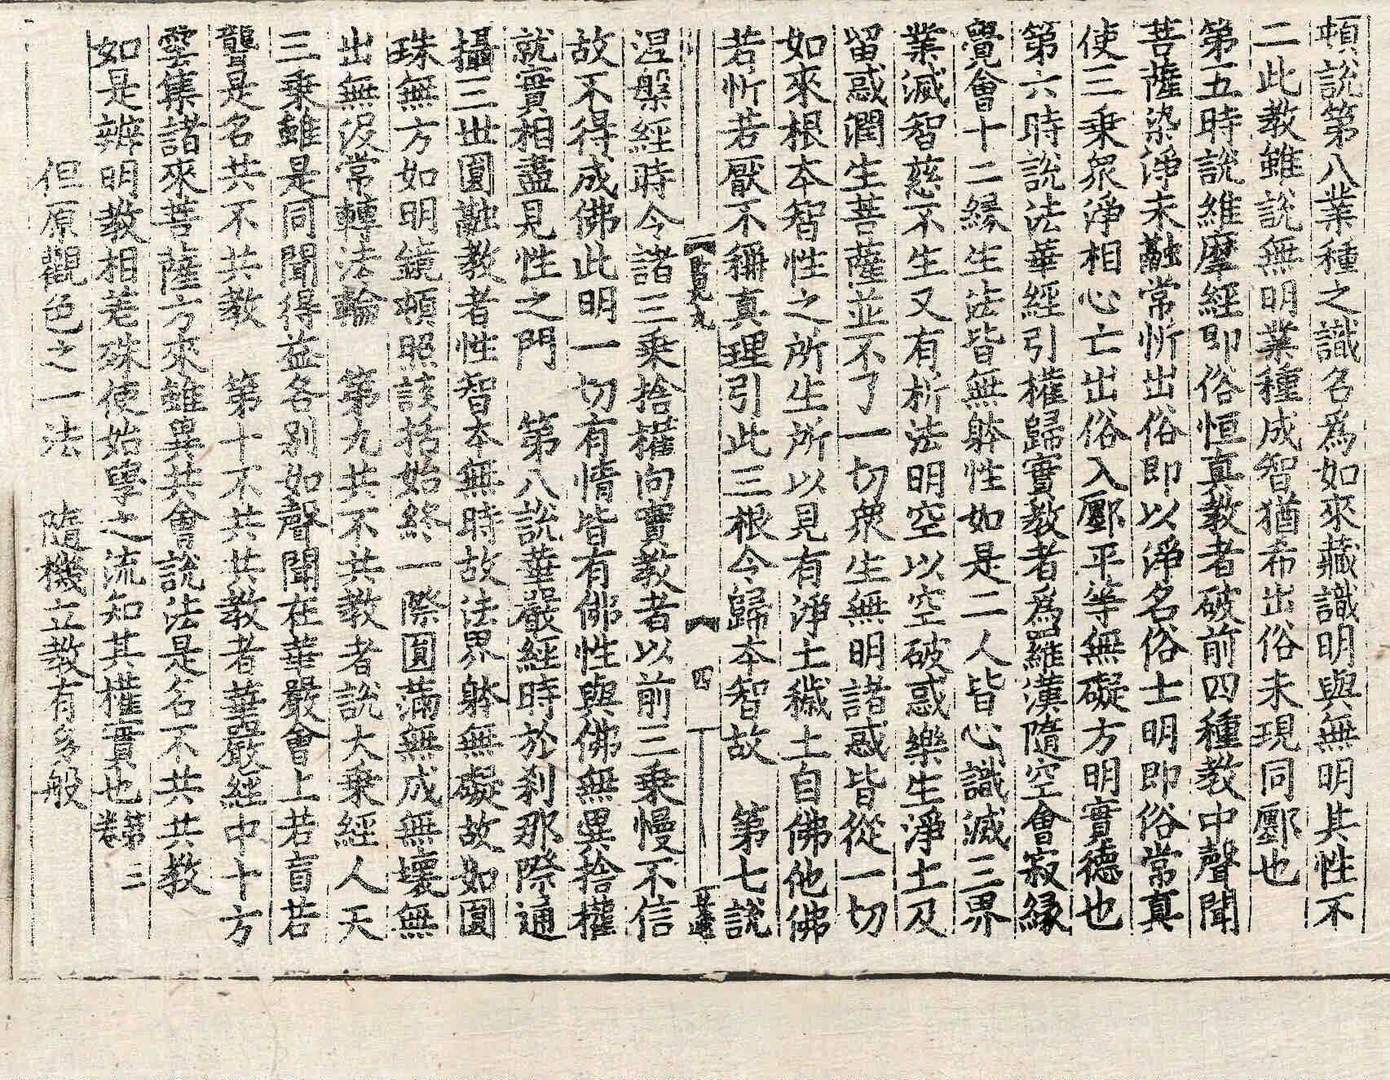 頓說第八業種之識名為如來藏識明與無明其性不
二此教雖說無明業種成智猶希出俗未現同鄽也
第五時說維摩經即俗恒真教者破前四種教中聲聞
菩薩染淨未融常忻出俗即以淨名俗士明即俗常真
使三乘眾淨相心亡出俗入鄽平等無礙方明實德也
第六時說法華經引權歸實教者為羅漢隨空會寂緣
覺會十二緣生法皆無躰性如是二人皆心識滅三界
業滅智慈不生又有析法明空以空破惑樂生淨土及
留惑潤生菩薩並不了一切眾生無明諸惑皆從一切
如來根本智性之所生所以見有淨土穢土自佛他佛
若忻若厭不稱真理引此三根令歸本智故　第七說
四
涅槃經時令諸三乘捨權向實教者以前三乘慢不信
故不得成佛此明一切有情皆有佛性與佛無異捨權
就實相盡見性之門　第八說華嚴經時於刹那際通
攝三世圓融教者性智本無時故法界躰無礙故如圓
珠無方如明鏡頓照該括始終一際圓滿無成無壞無
出無沒常轉法輪　第九共不共教者說大乘經人天
三乘雖是同聞得益各別如聲聞在華嚴會上若盲若
聾是名共不共教　第十不共共教者華嚴經中十方
雲集諸來菩薩方來雖異共會說法是名不共共教
如是辨明教相差殊使始學之流知其權實也第二卷
但原觀色之一法　隨機立教有多般